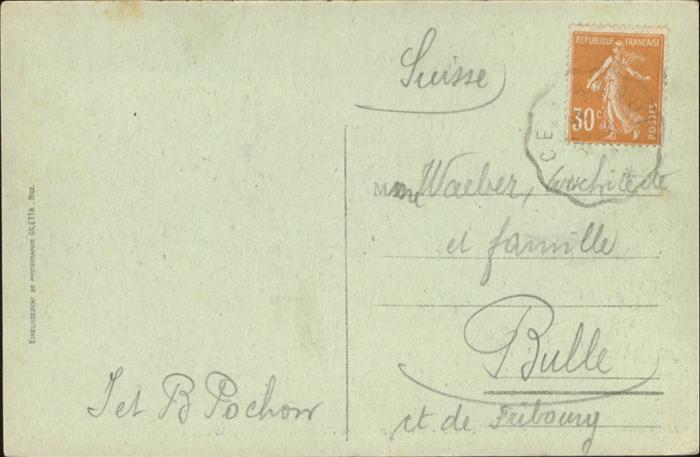 Suisse
REPUBLIQUE FRANCAISE
30c
POSTES
CE
Mme Waeber, architecte
et famille
Bulle
ct. de Fribourg
J et B Pochon
ETABLISSEMENT DE PHOTOGRAPHIE GILETTA. NICE.